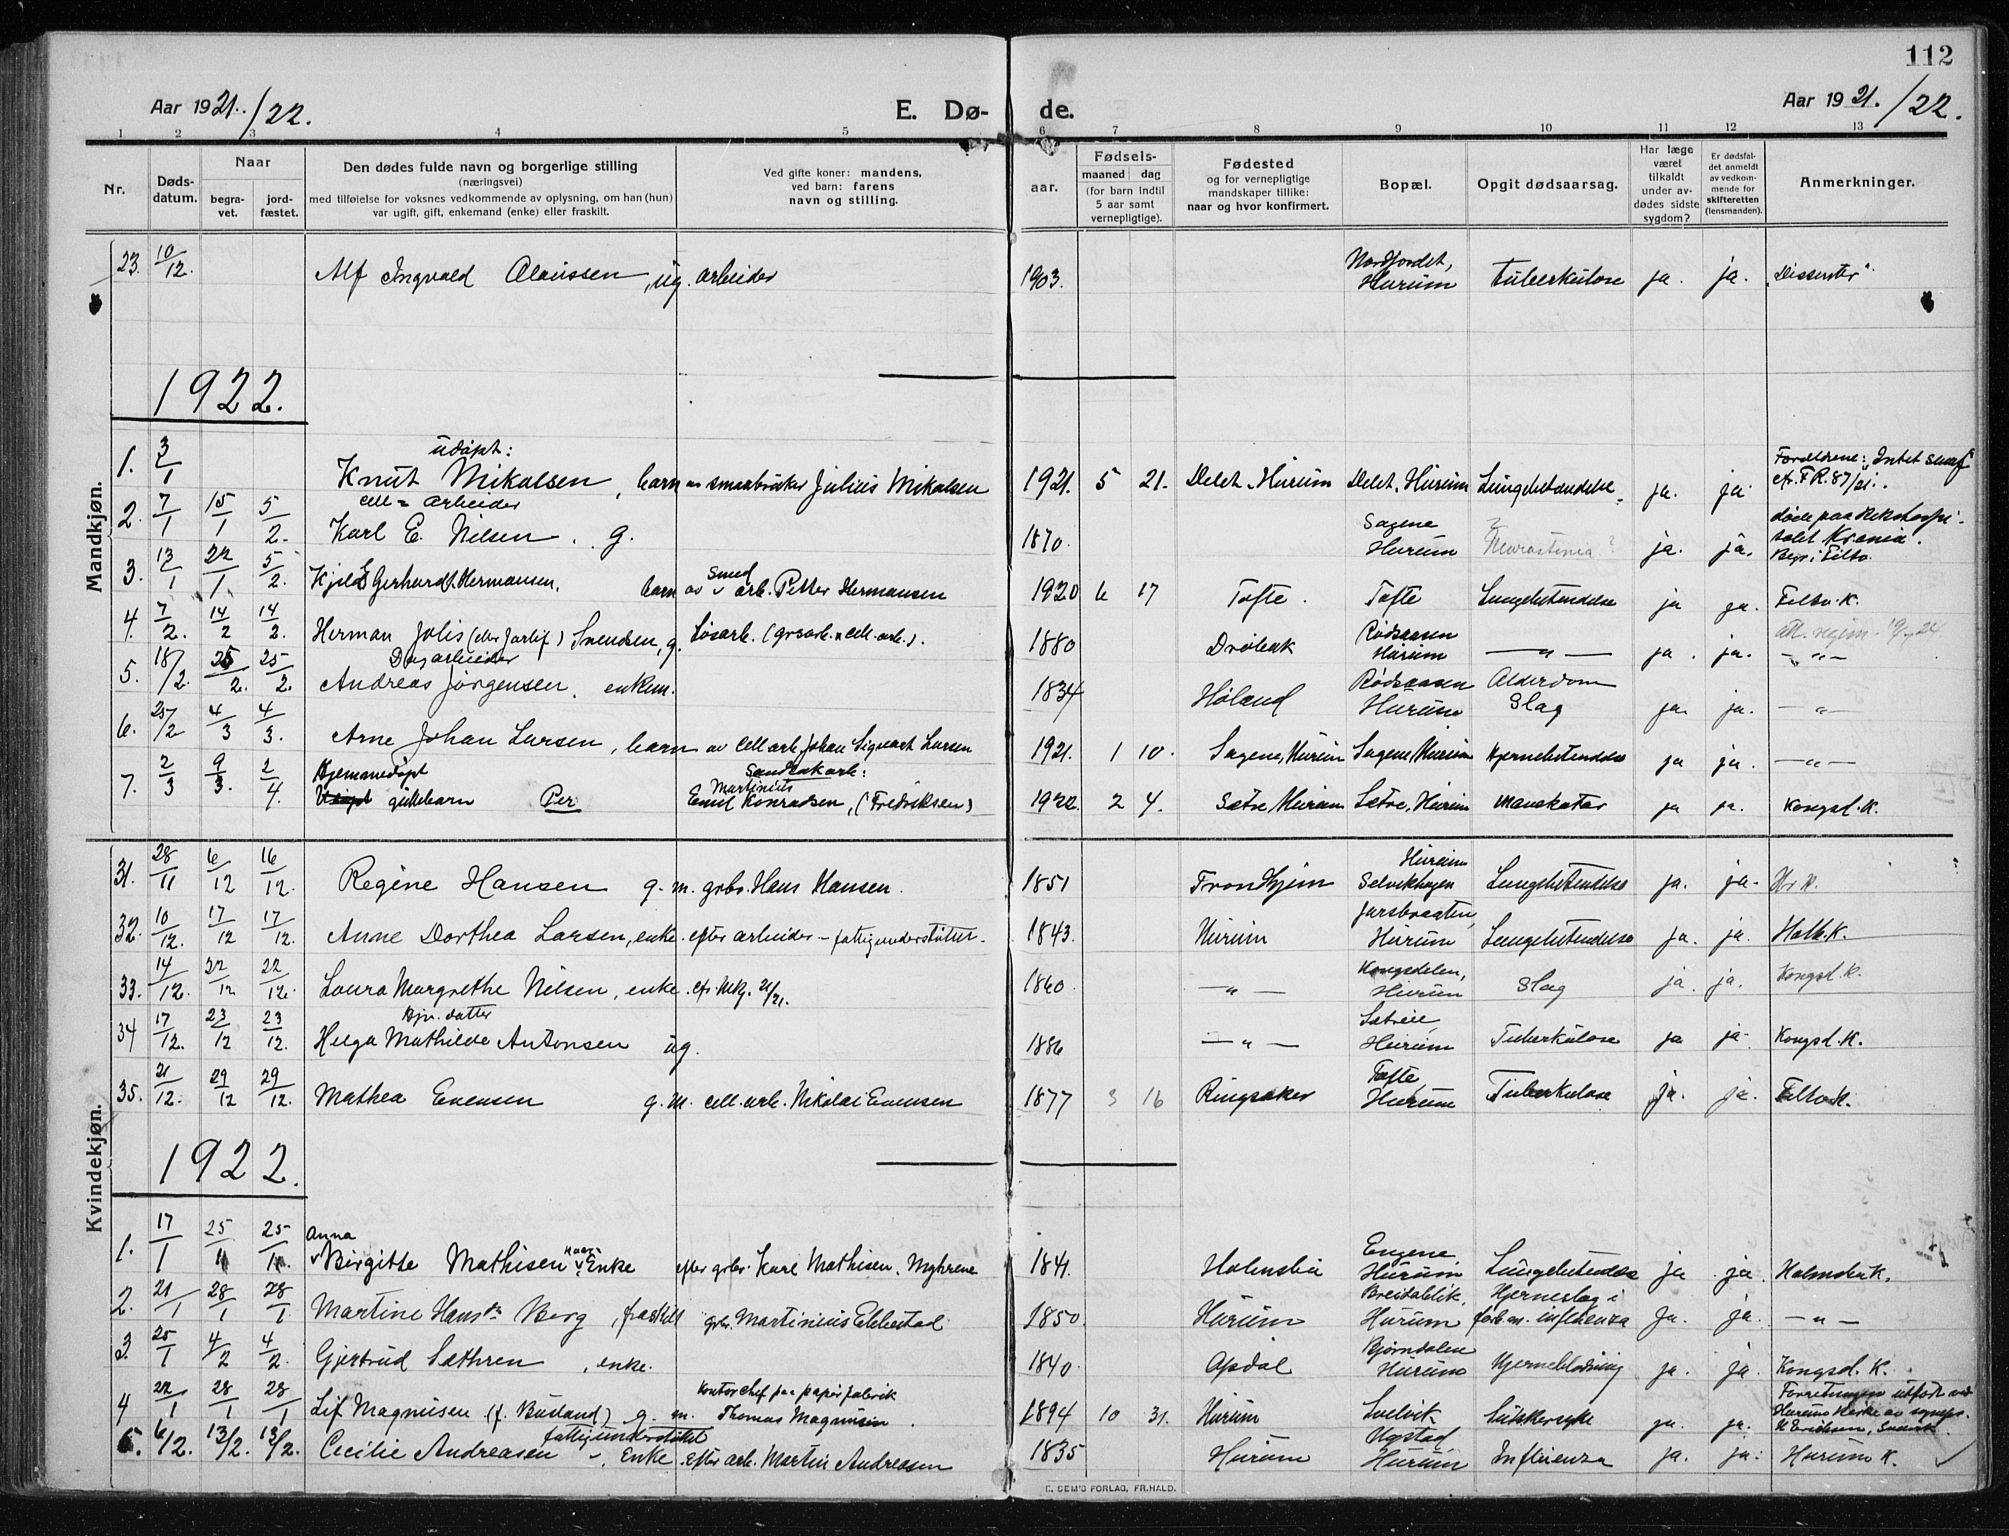 112
Aar 1921./22.
E. Dø-de.
Aar 1921./22.
1 2 3 4 5 6 7 8 9 10 11 12 13
Nr.
Døds-datum.
Naar
begra-vet.
jord-fæstet.
Den dødes fulde navn og borgerlige stilling
(næringsvei)
med tilføielse for voksnes vedkommende av oplysning, om han (hun)
var ugift, gift, enkemand (enke) eller fraskilt.
Ved gifte koner: mandens,
ved barn: farens
navn og stilling.
aar.
Fødsels-
maaned dag
(for barn indtil
5 aar samt
vernepligtige).
Fødested
og for vernepligtige
mandskaper tillike:
naar og hvor konfirmert.
Bopæl.
Opgit dødsaarsag.
Har læge
været
tilkaldt
under av-
dødes sidste
sygdom?
Er dødsfal-
det anmeldt
av vedkom-
mende for
skifteretten
(lensmanden).
Anmerkninger.
Mandkjøn.
23. 10/12. Alf Ingvald Olaussen, ug. arbeider 1903. Nordfjordet, Hurum Tuberkulose ja. ja. "Dissenter".
1922.
1. 3/1 udøpt: Knut Mikalsen, barn av smaabruker Julius Mikalsen 1921. 5 21. Delet, Hurum Delet, Hurum Lungebetændelse ja. ja Forældrene: "Intet samf" cfr. F.R. 87/21.
2. 7/1 15/1 5/2. cell= arbeider Karl E. Nilsen. g. 1870. Sagene Hurum Neurastenia? ja. ja. døde paa Rikshospitalet Krania. Begr. i Filtv.
3. 13/1 22/1 5/2. Kjeld Gerhardt Hermansen, barn av smed arb. Petter Hermansen 1920 6 17 Tofte. Tofte Lungebetændelse ja ja. Filtv. K.
4. 7/2. 14/2 14/2. Herman Jolis (eller Jarlif) Svendsen, g. Løsarb. (grvarb. & cell. arb.). 1880 Drøbak Rødsaasen Hurum — " — ja. ja. — " —
5. 18/2. 25/2. 25/2. Dagarbeider Andreas Jørgensen, enkem. 1834 Høland Rødsaasen Hurum Alderdom Slag ja. ja. — " —
6. 25/2 4/3 4/3. Arne Johan Larsen, barn av cell. arb. Johan Sigvart Larsen 1921. 1 10. Sagene, Hurum Sagene, Hurum Hjernebetændelse ja ja. — " —
7. 2/3 9/3. 2/4. Hjemmedøpt guttebarn Per Sandsakarb: Emil Martinius Konradsen, (Fredriksen) 1922. 2 4. Sætre, Hurum Sætre, Hurum Mavekatar ja ja. Kongsd. K.
Kvindekjøn.
31. 28/11 6/12 16/12. Regine Hansen g. m. grbr. Hans Hansen. 1851 Trondhjem Hurum Selvikhagen Lungebetændelse ja. ja. Hr. K.
32. 10/12. 17/12 17/12. Anne Dorthea Larsen, enke. efter arbeider – fattigunderstøttet. 1843. Hurum Jarsbraaten, Hurum Lungebetændelse ja. ja. Holb. K.
33. 14/12. 22/12 22/12. Laura Margrethe Nilsen, enke. cfr. Mkj. 21/21. 1860 — " — Kongsdelen, Hurum Slag ja. ja. Kongsd. K.
34 17/12. 23/12 23/12. Bjr. datter Helga Mathilde Antonsen ug. 1886 — " — Sætreie, Hurum Tuberkulose ja ja. Kongsd. K.
35. 21/12. 29/12 29/12. Mathea Evensen g. m. cell. arb. Nikolai Evensen 1877 3 16 Ringsaker Tofte, Hurum Tuberkulose ja. ja. Filtv. K.
1922.
1. 17/1 25/1 25/1. Anna Birgitte Mathisen Enke efter grbr. Karl Mathisen, Myhrene 1841. Holmsbu Engene Hurum Lungebetændelse ja ja. Holmsbu K.
2. 21/1 28/1 28/1 Martine Hansdtr. Berg, fraskilt grbr. Martinius Ebbestad 1850. Hurum Breidablik, Hurum Hjerneslag i forb. m. influenza ja. ja. — " —
3. 25/1 4/2 4/2. Gjertrud Sæthren, enke. 1840. Opdal Bjørndalen Hurum Hjerneblødning ja. ja. Kongsd. K.
4 22/1 28/1 28/1 Lif Magnusen (f. Busland) g. m. kontorchef paa papirfabrik Thomas Magnusen. 1894 10 31. Hurum Svelvik Sukkersyke ja. ja. Forretningen utført ved Hurums kirke av sognepr. N. Erichsen, Svelvik.
5. 6/2. 13/2. 13/2. fattigunderstøttet Cecilie Andreasen –, Enke efter arb. Martin Andreasen 1835 Hurum Ugstad, Hurum Influenza ja. ja. Hurum K.
E. SEM'S FORLAG, FR.HALD.